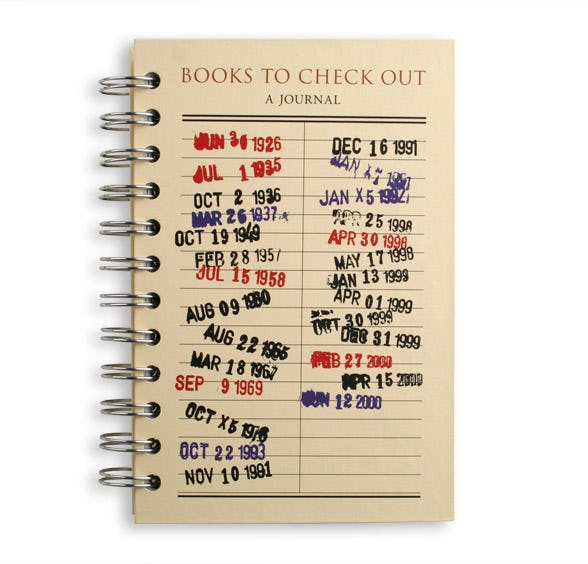 BOOKS TO CHECK OUT
A JOURNAL
JUN 1926
JUL 1 1935
OCT 2 1936
MAR 26 1937
OCT 19 1949
FEB 28 1957
JUL 15 1958
AUG 09 1960
AUG 22 1965
MAR 18 1967
SEP 9 1969
OCT X5 1976
OCT 22 1983
NOV 10 1991
DEC 16 1991
JAN
JAN X5
APR 25 1998
APR 30 1998
MAY 17 1998
JAN 13 1999
APR 01 1999
OCT 30 1999
DEC 31 1999
FEB 27 2000
APR 15 2000
JUN 12 2000